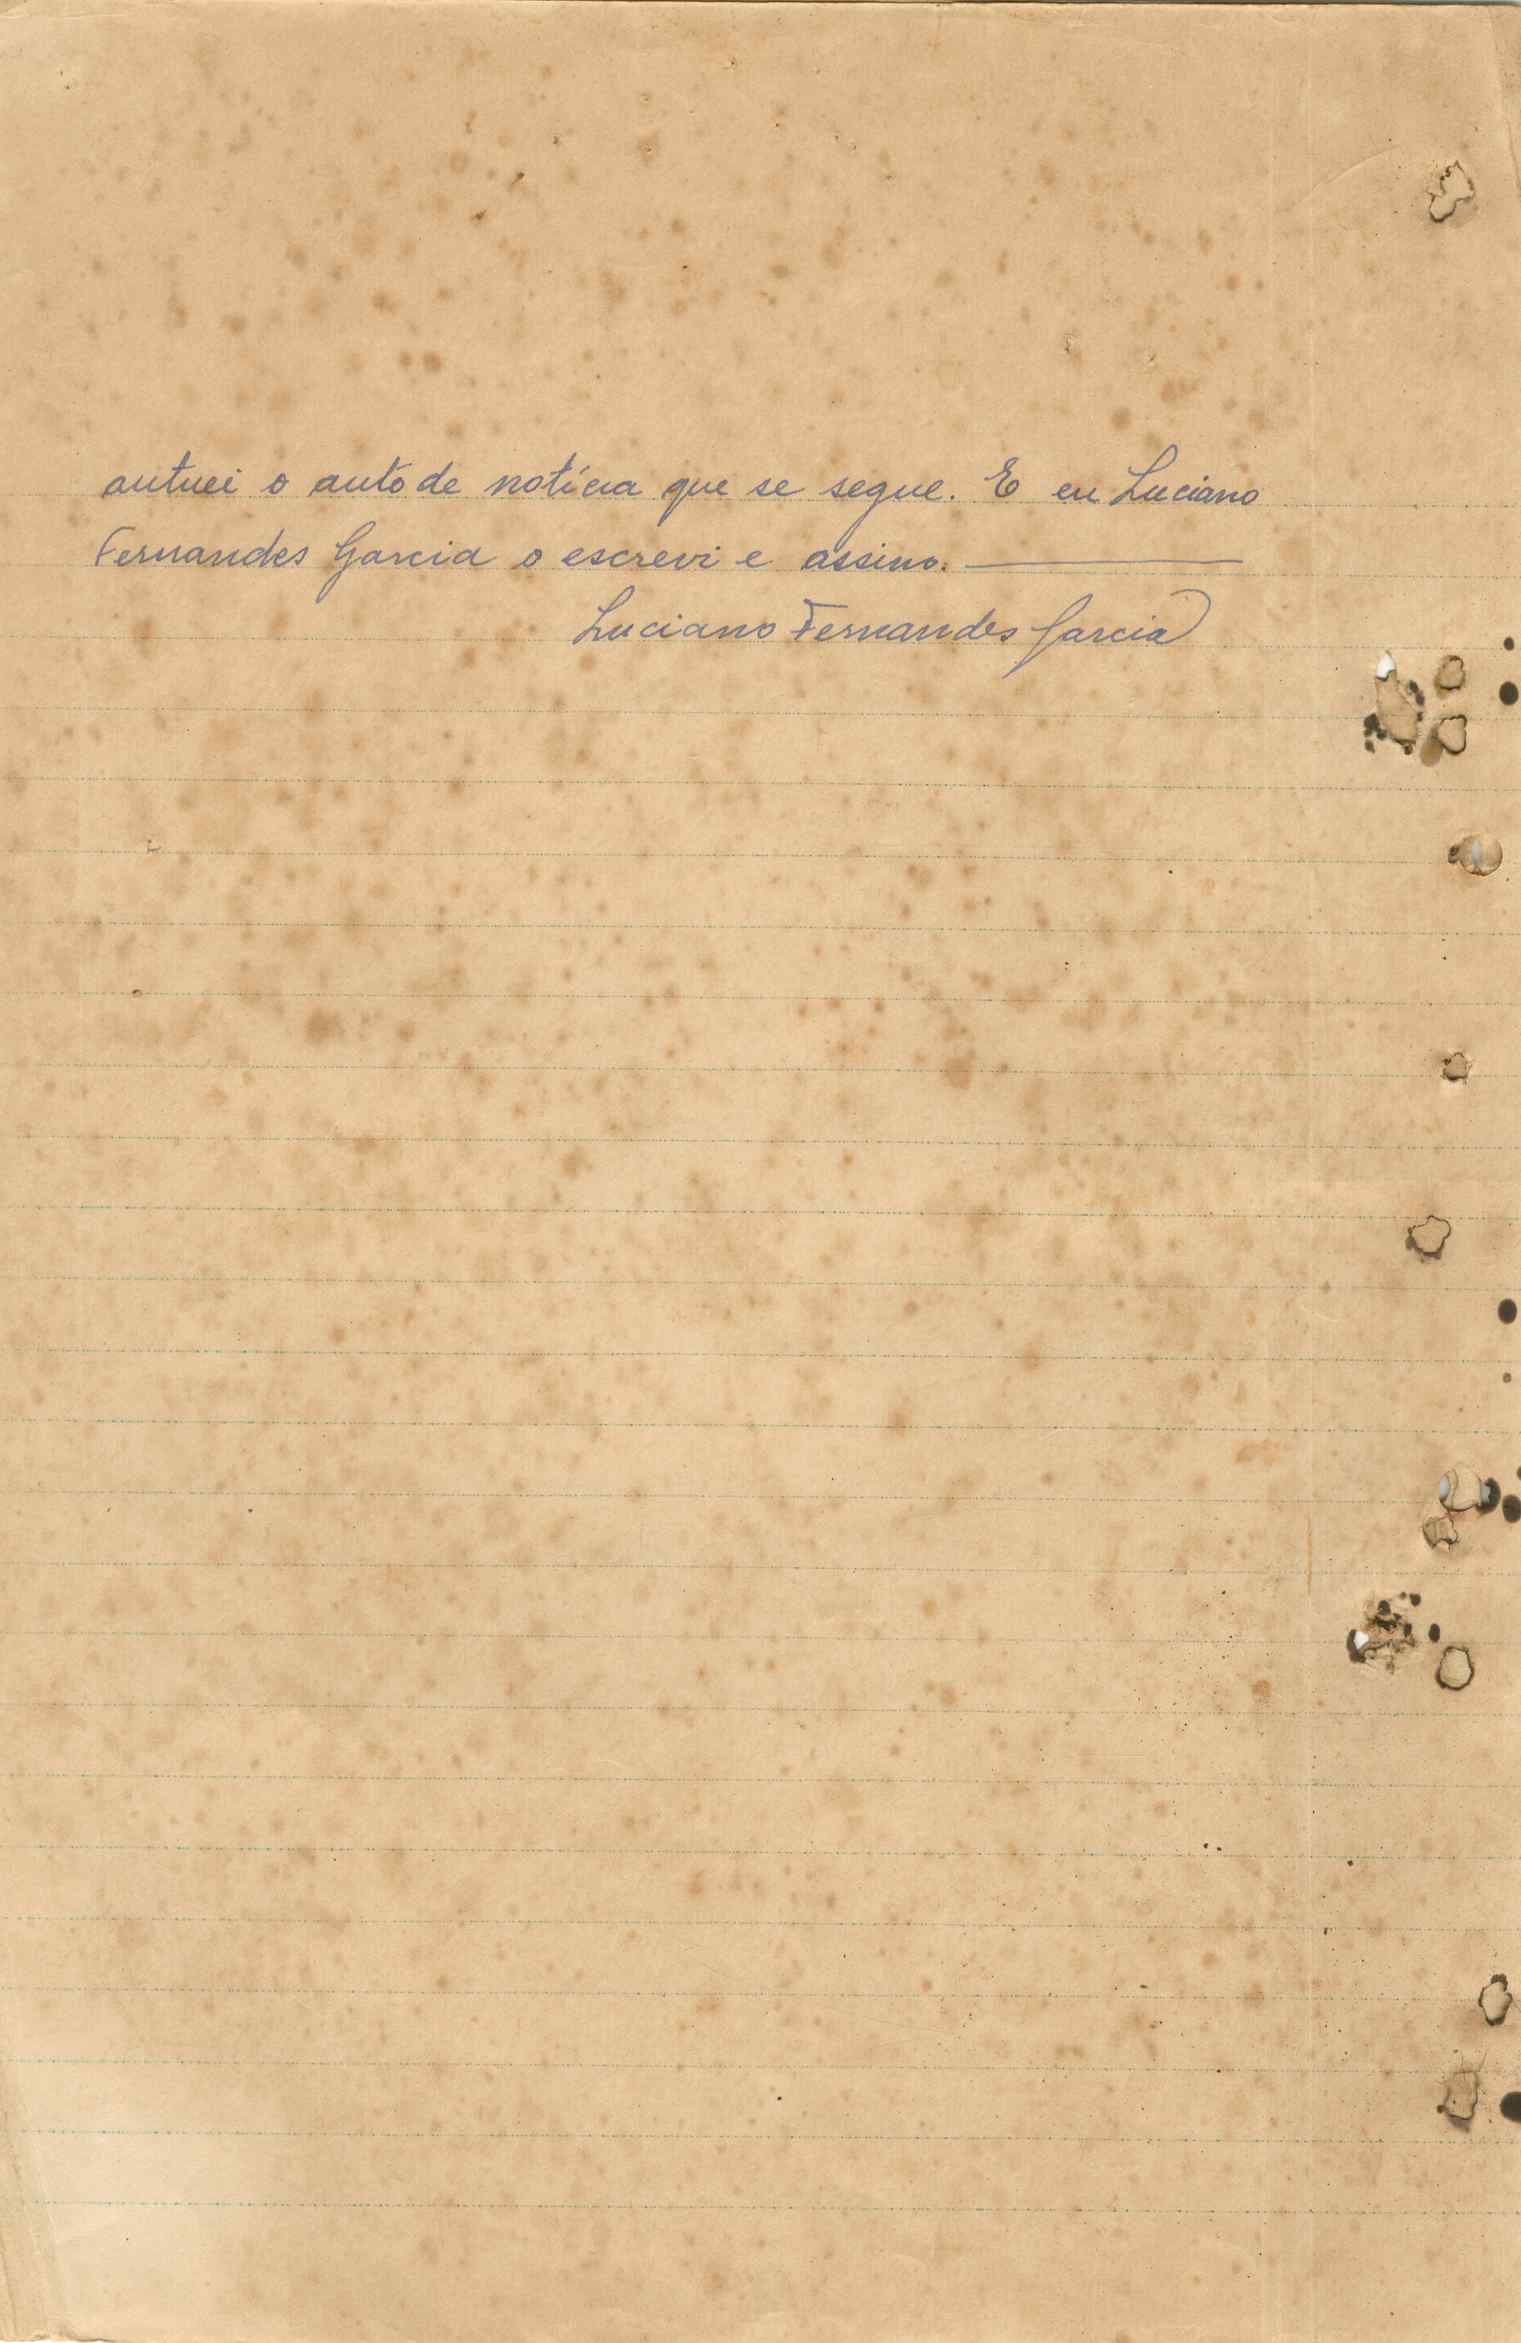 autuei o auto de notícia que se segue. E eu Luciano
Fernandes Garcia o escrevi e assino.
Luciano Fernandes Garcia